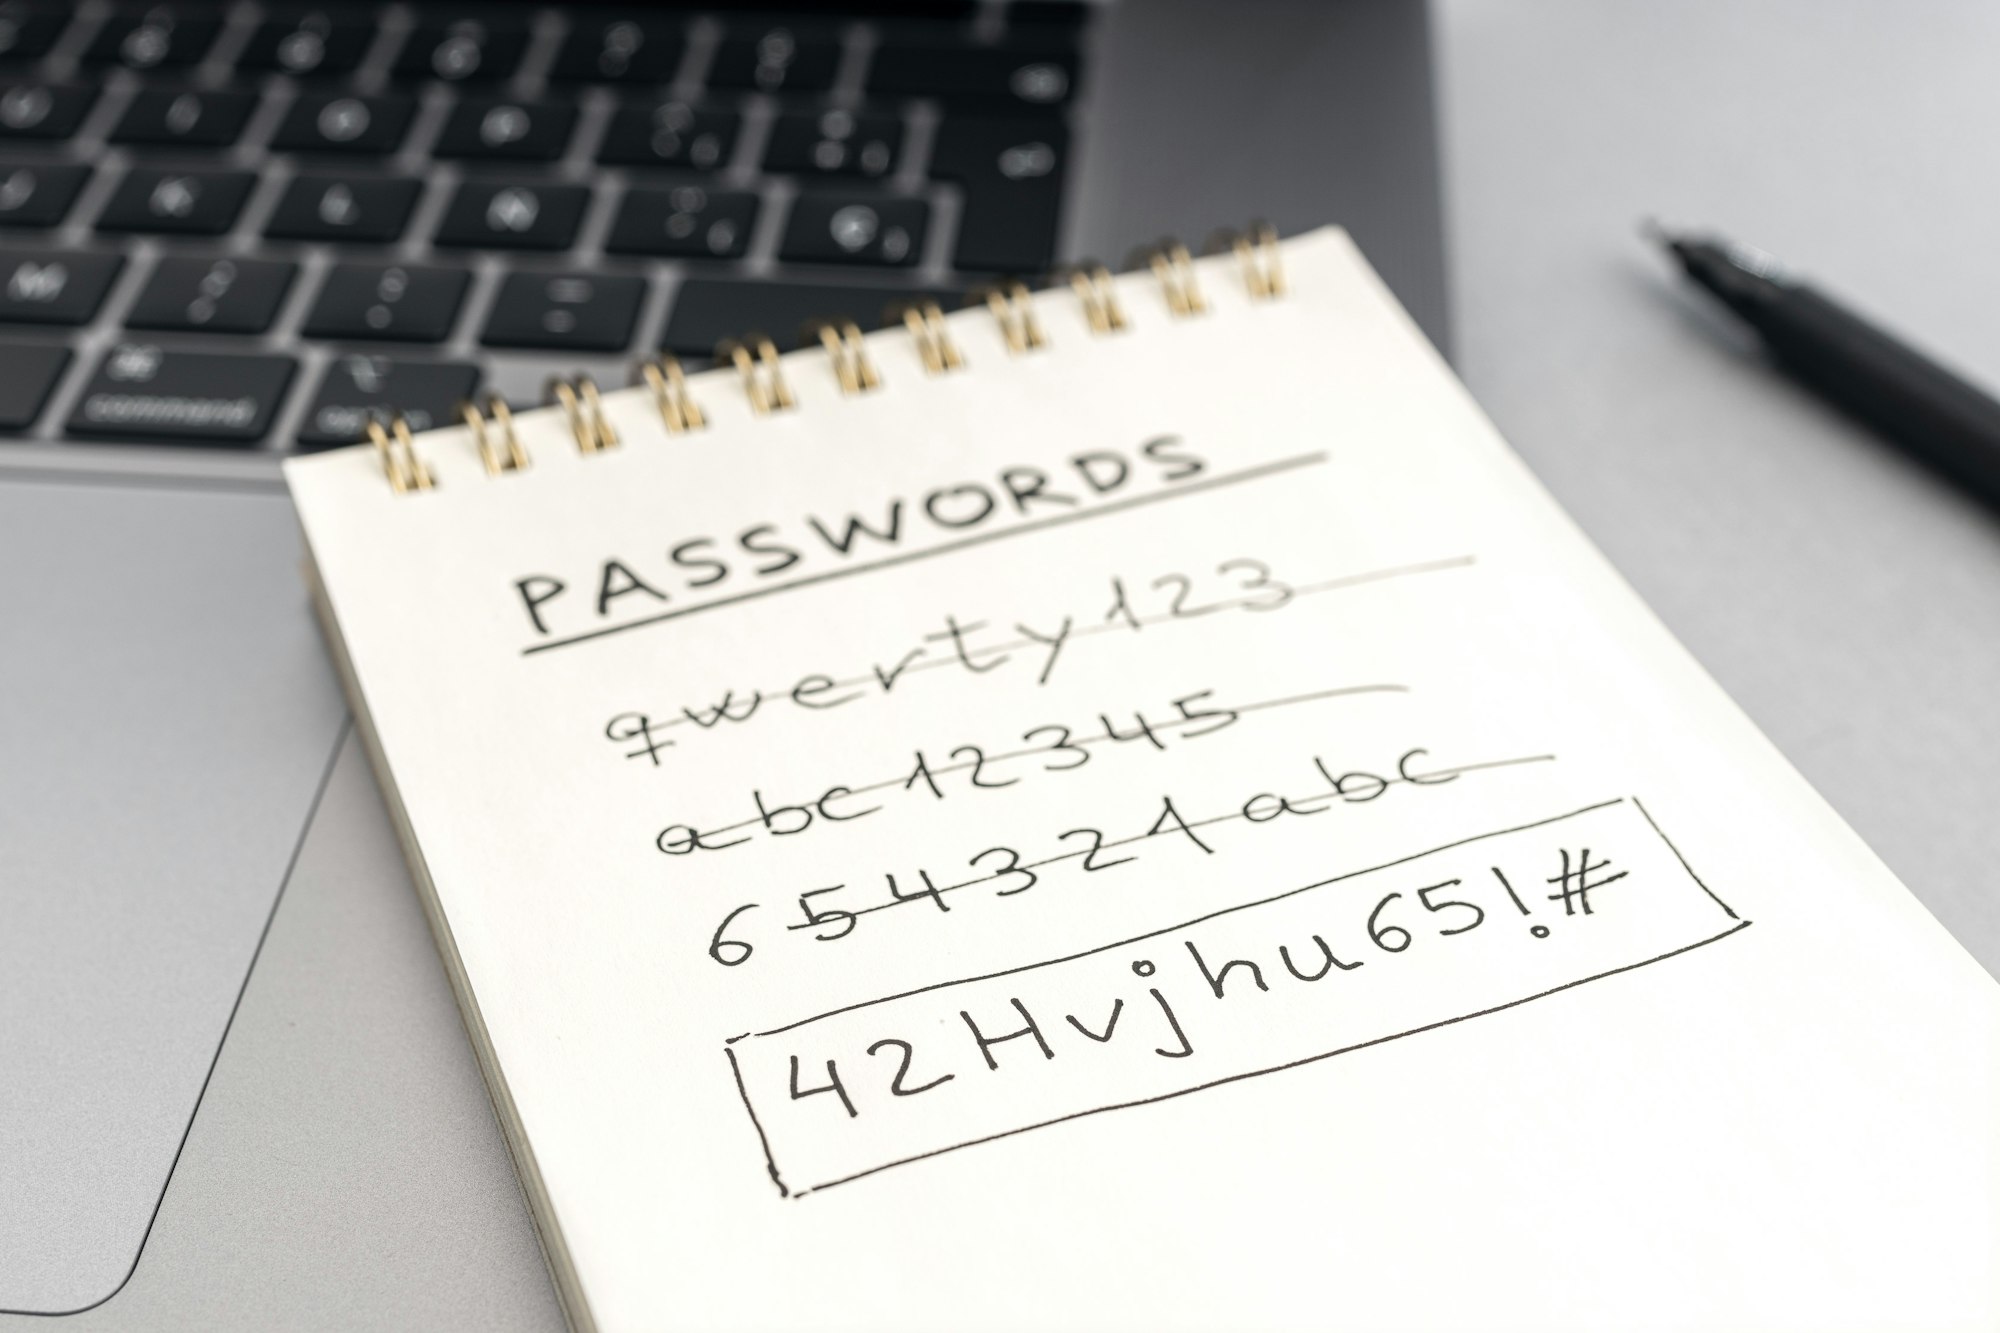 command
PASSWORDS
qwerty123
abc12345
654321abc
42Hvjhu65!#